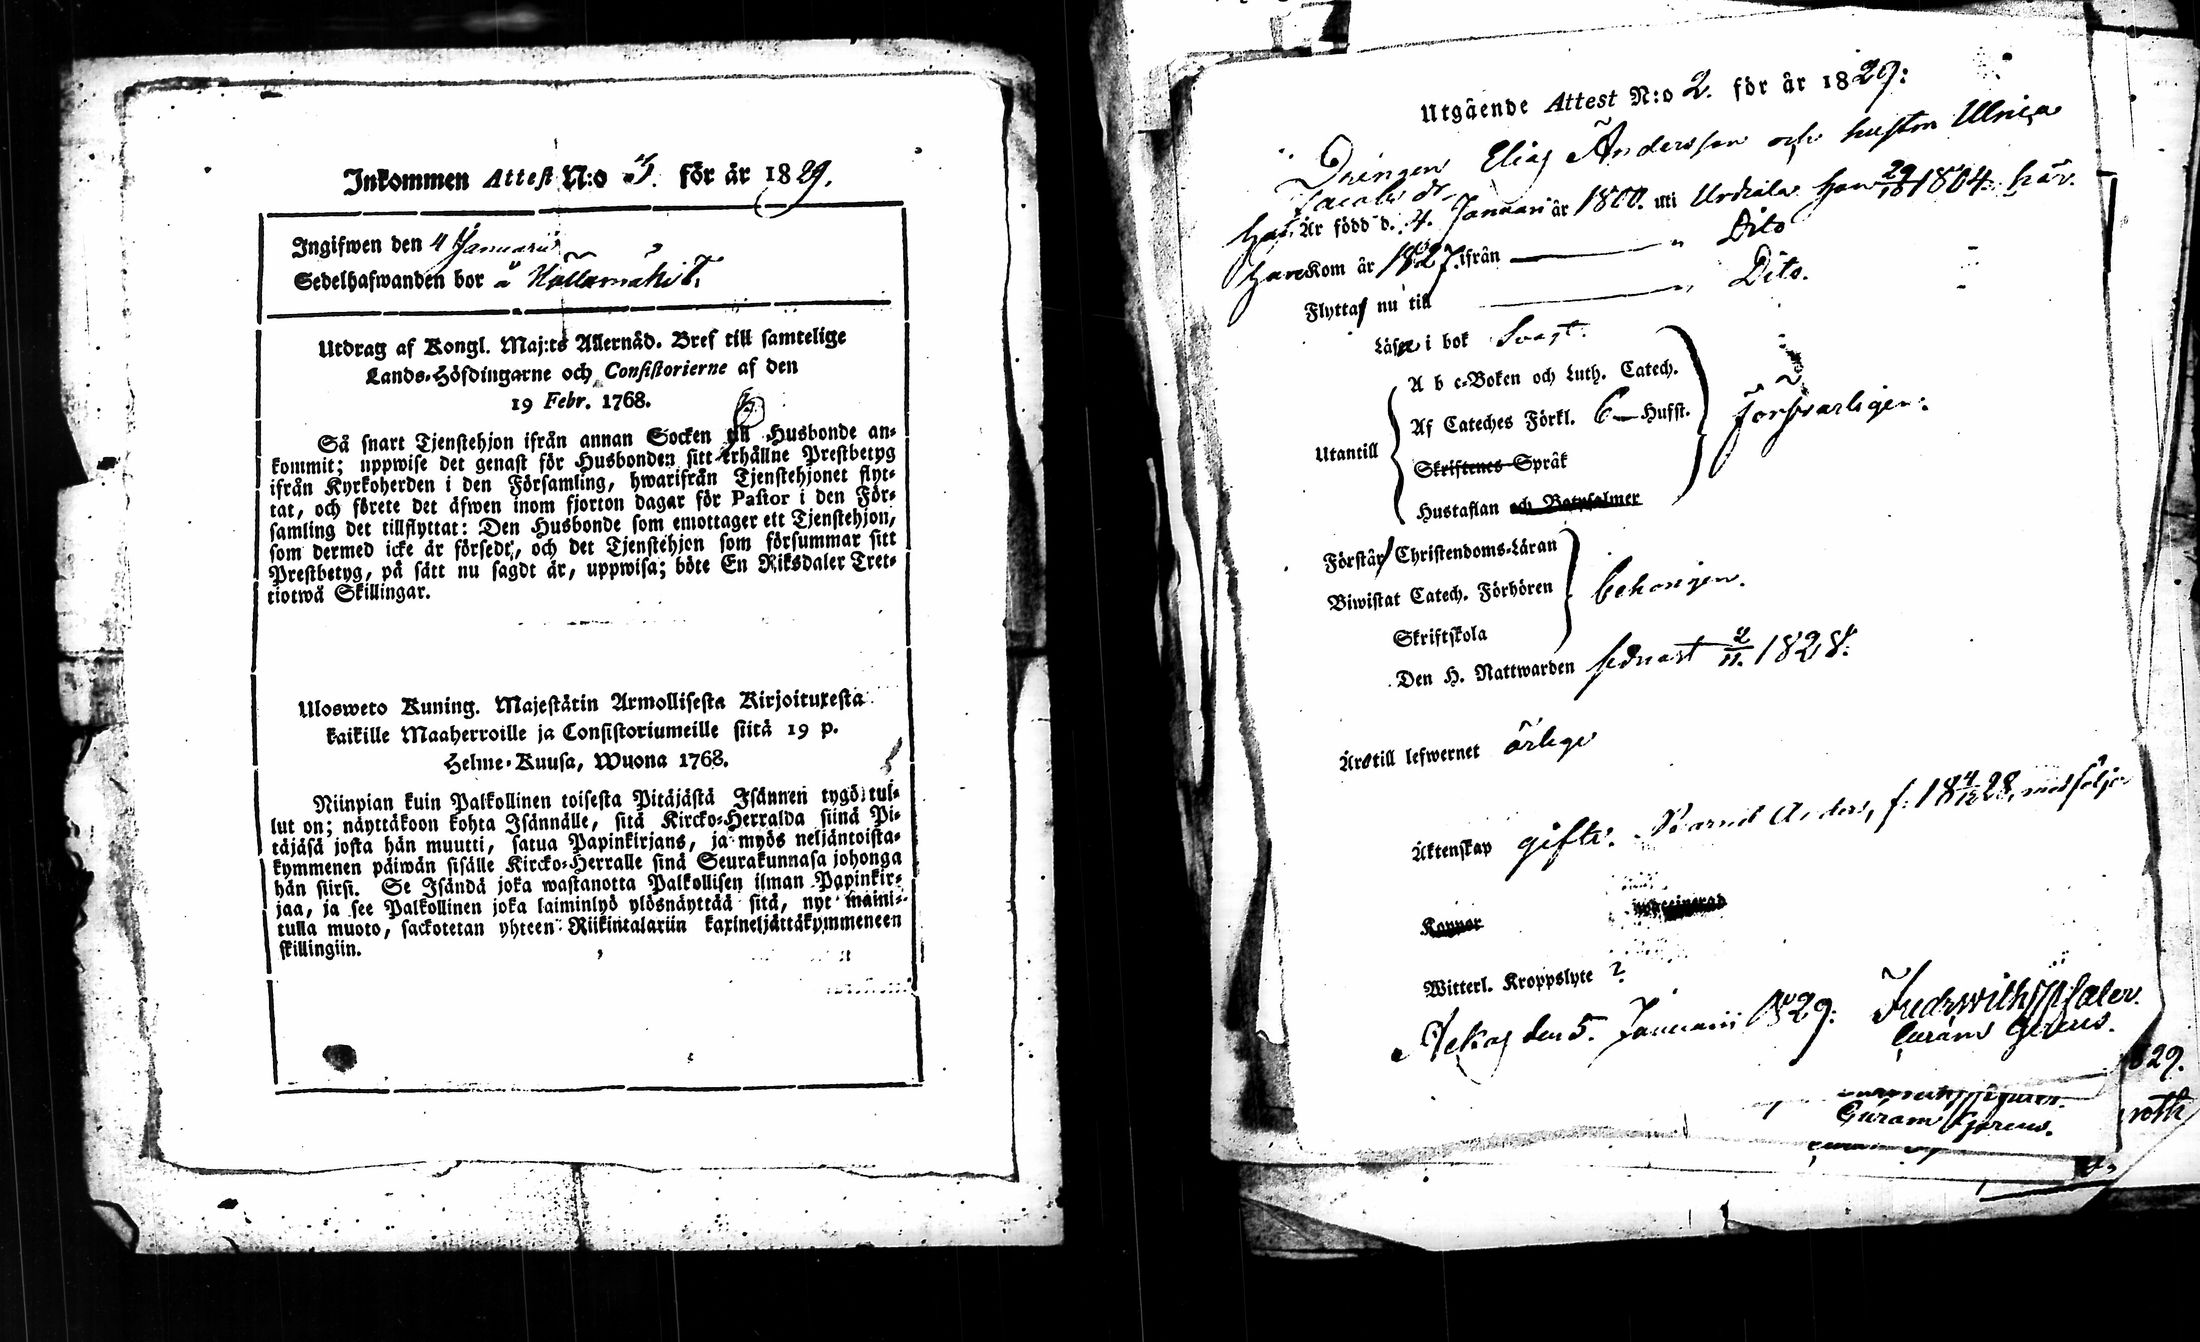 Inkommen Attest N:o 3. för år 1829.
Ingifwen den 4 Januarii
Sedelhafwanden bor å Källamäki T.
Utdrag af Kongl. Maj:ts Allernåd. Bref till samtelige
Lands-Höfdingarne och Consistorierne af den
19 Febr. 1768.
Så snart Tjenstehjon ifrån annan Socken till Husbonde an-
kommit; uppwise det genast för Husbonden sitt erhällne Prestbetyg
ifrån Kyrkoherden i den Församling, hwarifrån Tjenstehjonet flyt-
tat, och förete det äfwen inom fjorton dagar för Pastor i den För-
samling det tillflyttat: Den Husbonde som emottager ett Tjenstehjon,
som dermed icke är försedt, och det Tjenstehjon som försummar sitt
Prestbetyg, på sätt nu sagdt är, uppwisa; böte En Riksdaler Tret-
tiotwå Skillingar.
Ulosweto Kuning. Majestätin Armollisesta Kirjoituxesta
kaikille Maaherroille ja Consistoriumeille siitä 19 p.
Helme-Kuusa, Wuona 1768.
Niinpian kuin Palkollinen toisesta Pitäjästä Isännen tygö tul-
lut on; näyttäkoon kohta Isännälle, sitä Kircko-Herralda siinä Pi-
täjäsä josta hän muutti, satua Papinkirjans, ja myös neljäntoista-
kymmenen päiwän sisälle Kircko-Herralle sinä Seurakunnasa johonga
hän siirsi. Se Isändä joka wastanotta Palkollisen ilman Papinkir-
jaa, ja see Palkollinen joka laiminlyö ylösnäyttää sitä, nyt maini-
tulla muoto, sackotetan yhteen Riikintalariin kaxineljättäkymmeneen
skillingiin.
Utgående Attest N:o 2. för år 1829:
Drengen Elias Andersson och hustru Ulrica
Jacobs dr
Han Är född d. 4. Januari år 1800. uti Urdiala hon 29/10 1804. här.
Han Kom år 1827. ifrån — " Dito
Flyttas nu till — " Dito.
Läsa i bok Svagt.
A b c-Boken och Luth. Catech.
Af Cateches Förkl. 6 — Hufst.
Utantill
Skriftenes Språk
Hustaflan och Botpsalmer
försvarligen.
Förstår Christendoms-Läran
Biwistat Catech. Förhören
behörigen.
Skriftskola
Den H. Nattwarden sednast 2/11. 1828.
Äro till lefwernet ärlige
Äktenskap gifte. Barnet Anders, f. 18 4/12 28, medfölje
Koppor vaccinerad
Witterl. Kroppslyte ?
Ackas den 5. Januarii 1829.
Curam Gerens.
829.
Curam Gerens.
roth